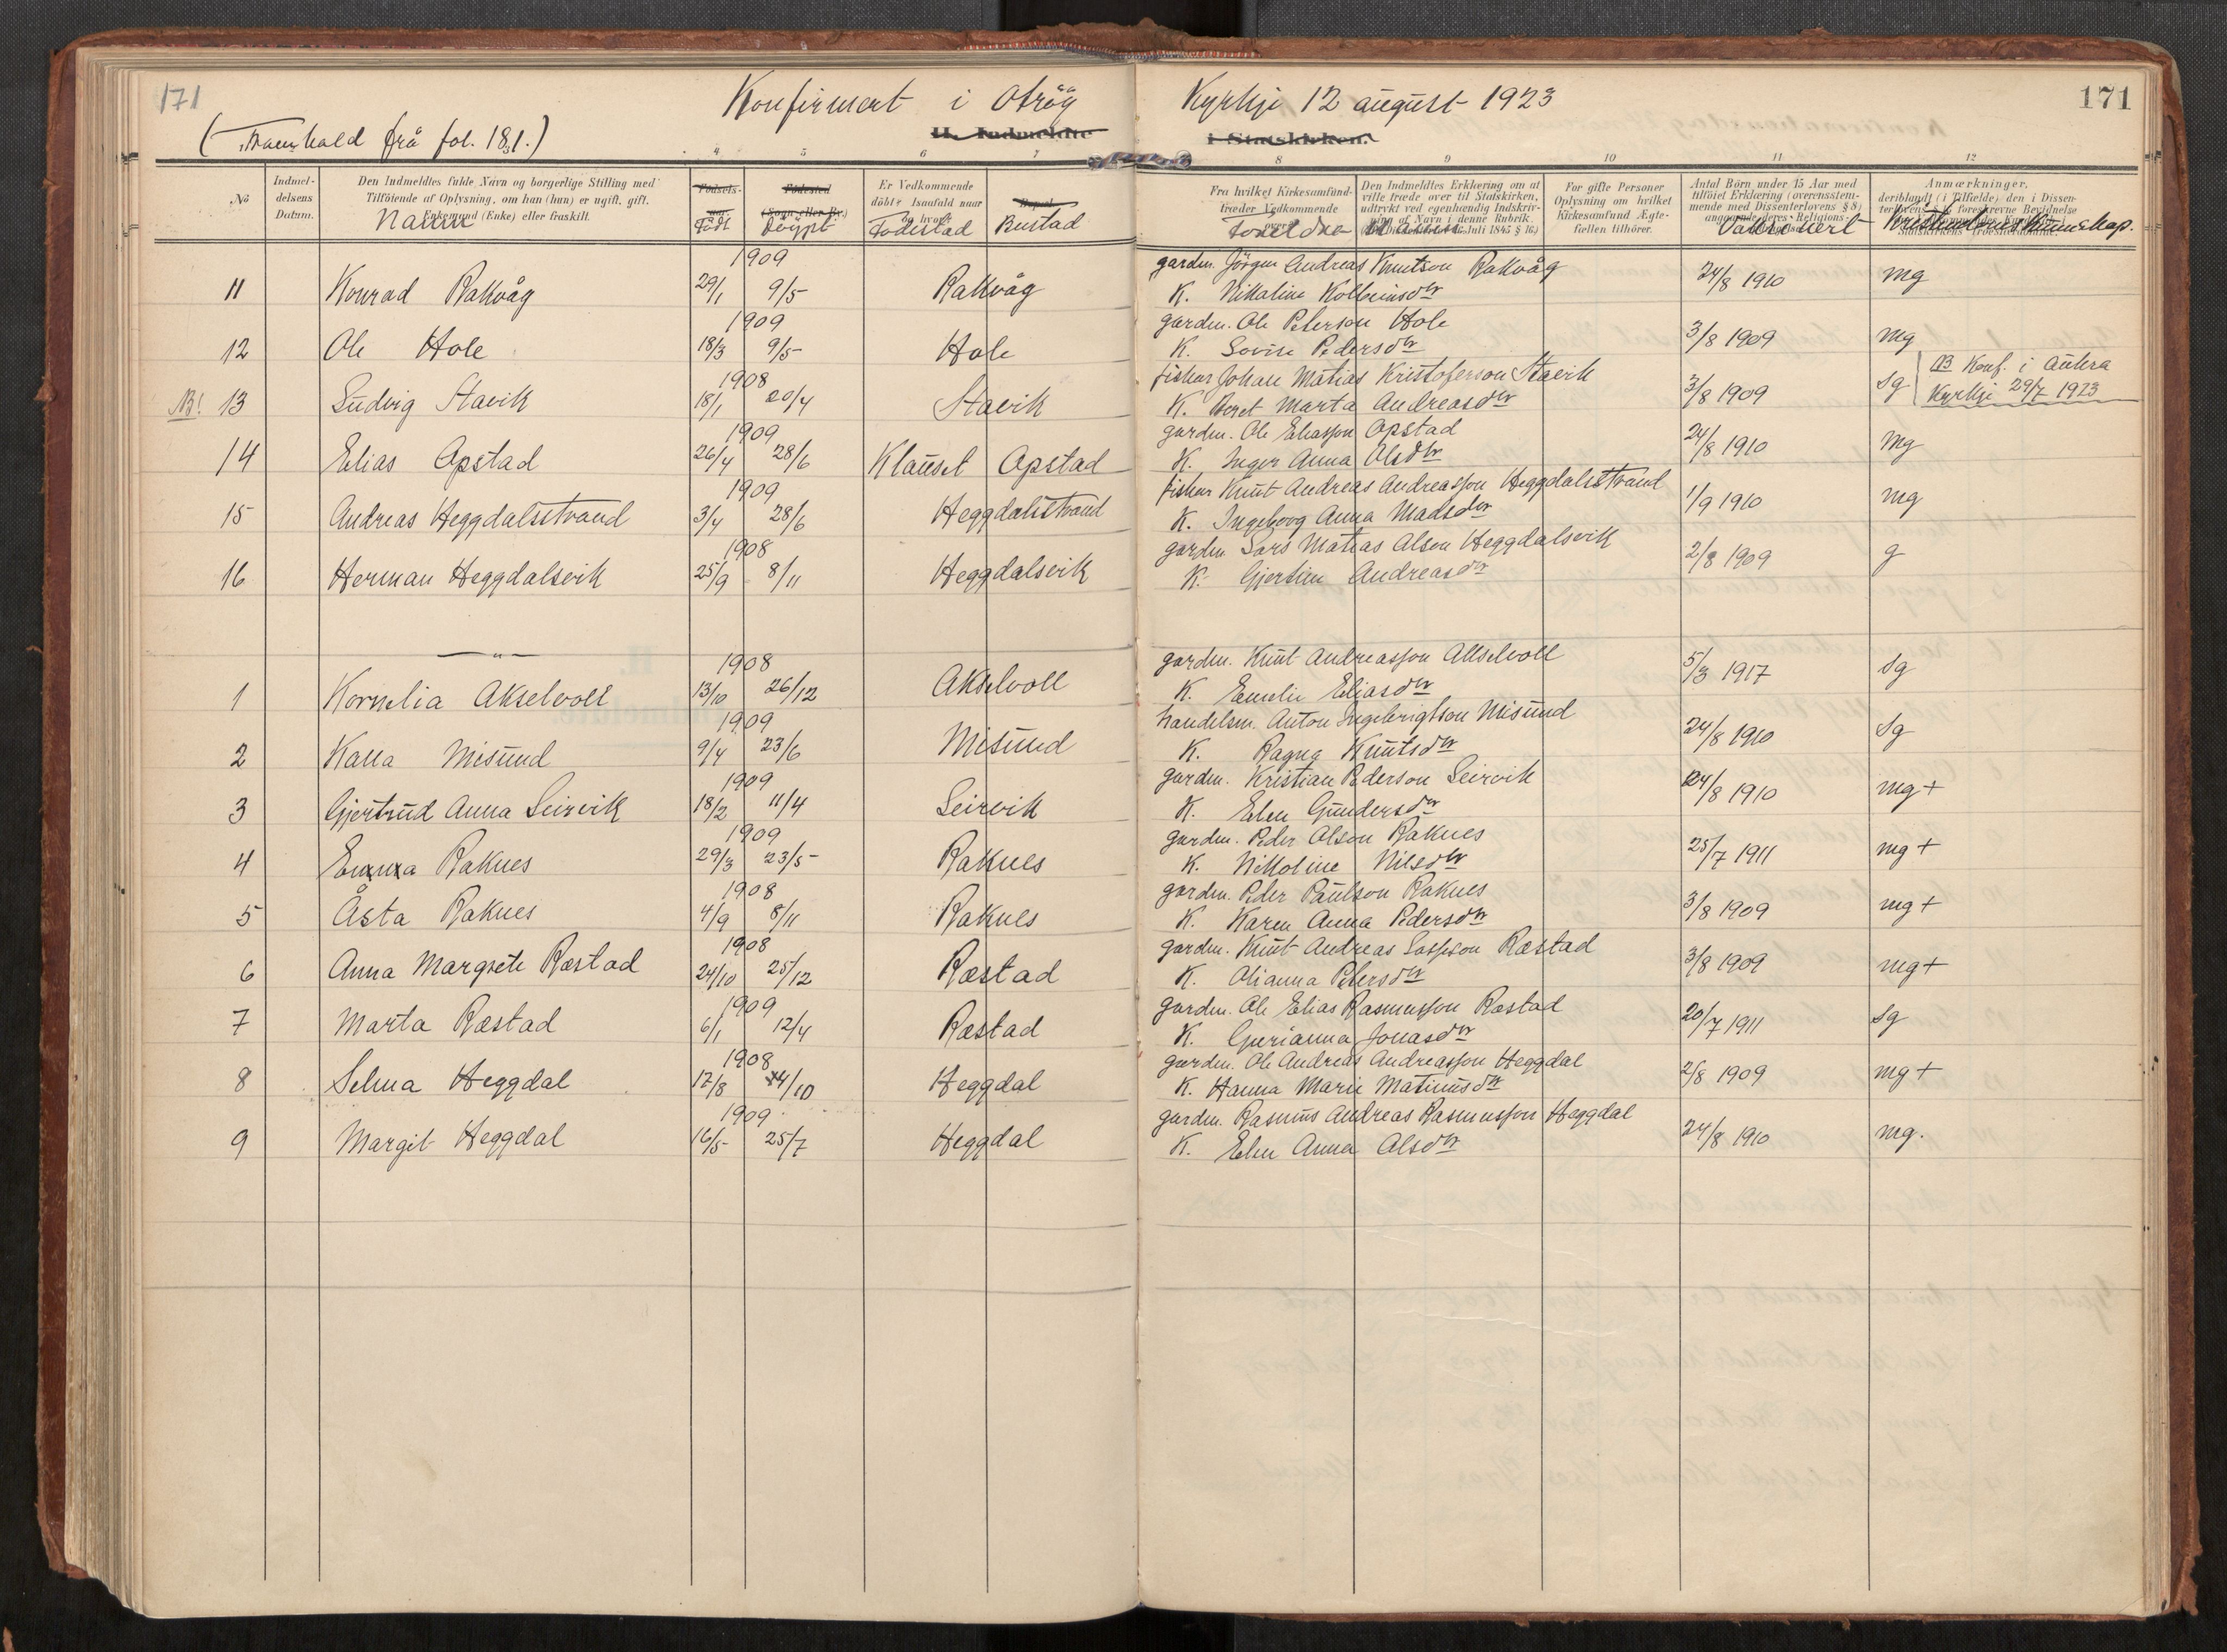 171
Konfirmert i Otröy Kyrkje 12 august 1923
171
(Framhald frå fol. 181.)
II. Indmeldte i Statskirken.
4 5 6 7 8 9 10 11 12
No
Indmel-
delsens
Datum.
Den Indmeldtes fulde Navn og borgerlige Stilling med
Tilföiende af Oplysning, om han (hun) er ugift, gift,
Enkemand (Enke) eller fraskilt.
Namn
Födsels-
aar.
Födt
Födested
(Sogn eller By.)
Döypt
Er Vedkommende
döbt? Isaafald naar
og hvor?
Födestad
Bopæl.
Bustad
Fra hvilket Kirkesamfund
træder Vedkommende
Foreldre
Den Indmeldtes Erklæring om at
ville træde over til Statskirken,
udtrykt ved egenhændig Indskriv-
ning af Navn i denne Rubrik
For gifte Personer
Oplysning om hvilket
Kirkesamfund Ægte-
fællen tilhörer.
Antal Börn under 15 Aar med
tilföiet Erklæring (overensstem-
mende med Dissenterlovens § 8)
angaaende deres Religions-
Vaksinert
Anmærkninger,
deriblandt (i Tilfælde) den i Dissen-
terlovens § foreskrevne Bevidnelse
Kristendoms Kunnskap.
11 Konrad Rakvåg 1909 29/1 9/5 Rakvåg gardm. Jörgen Andreas Knutson Rakvåg 24/8 1910 mg
K. Nikoline Kolbeinsdtr
12 Ole Hole 1909 18/3 9/5 Hole gardm. Ole Peterson Hole 3/8 1909 mg
K. Lovise Pedersdtr
NB! 13 Ludvig Stavik 1908 18/1 20/4 Stavik fiskar Johan Matias Kristoferson Stavik 3/8 1909 sg NB Konf. i Aukra
K. Beret Marta Andreasdtr Kyrkje 29/7 1923
14 Elias Opstad 1909 26/4 28/6 Klauset Opstad gardm. Ole Eliasson Opstad 24/8 1910 mg
K. Inger Anna Olsdtr
15 Andreas Heggdalsstrand 1909 3/4 28/6 Heggdalsstrand fiskar Knut Andreas Andreasson Heggdalsstrand 1/9 1910 mg
K. Ingeborg Anna Madsdtr
16 Herman Heggdalsvik 1908 25/9 8/11 Heggdalsvik gardm Lars Matias Olsen Heggdalsvik 2/8 1909 g
K. Gjertine Andreasdtr
— " —
1 Kornelia Akselvoll 1908 13/10 26/12 Akselvoll gardm. Knut Andreasson Akselvoll 5/3 1917 sg
K. Emelie Eliasdtr
2 Kalla Misund 1909 9/4 23/6 Misund handelsm. Anton Ingebrigtson Misund 24/8 1910 sg
K. Ragna Knutsdtr
3 Gjertrud Anna Seirvik 1909 18/2 11/4 Seirvik gardm. Kristian Pederson Seirvik 24/8 1910 mg+
K. Elen Gundersdtr
4 Emma Raknes 1909 29/3 23/5 Raknes gardm. Peder Olson Raknes 25/7 1911 mg+
K. Nikoline Nilsdtr
5 Åsta Raknes 1908 4/9 8/11 Raknes gardm. Peder Paulson Raknes 3/8 1909 mg+
K. Karen Anna Pedersdtr
6 Anna Margrete Røstad 1908 24/10 25/12 Røstad gardm. Knut Andreas Larsson Røstad 3/8 1909 mg+
K. Olianna Petersdtr
7 Marta Røstad 1909 6/1 12/4 Røstad gardm. Ole Elias Rasmusson Røstad 20/7 1911 sg
K. Gurianna Jonasdtr
8 Selma Heggdal 1908 17/8 4/10 Heggdal gardm. Ole Andreas Andreasson Heggdal 2/8 1909 mg+
K. Hanna Marie Matinusdtr
9 Margit Heggdal 1909 16/5 25/7 Heggdal gardm. Rasmus Andreas Rasmusson Heggdal 24/8 1910 mg.
K. Elen Anna Olsdtr